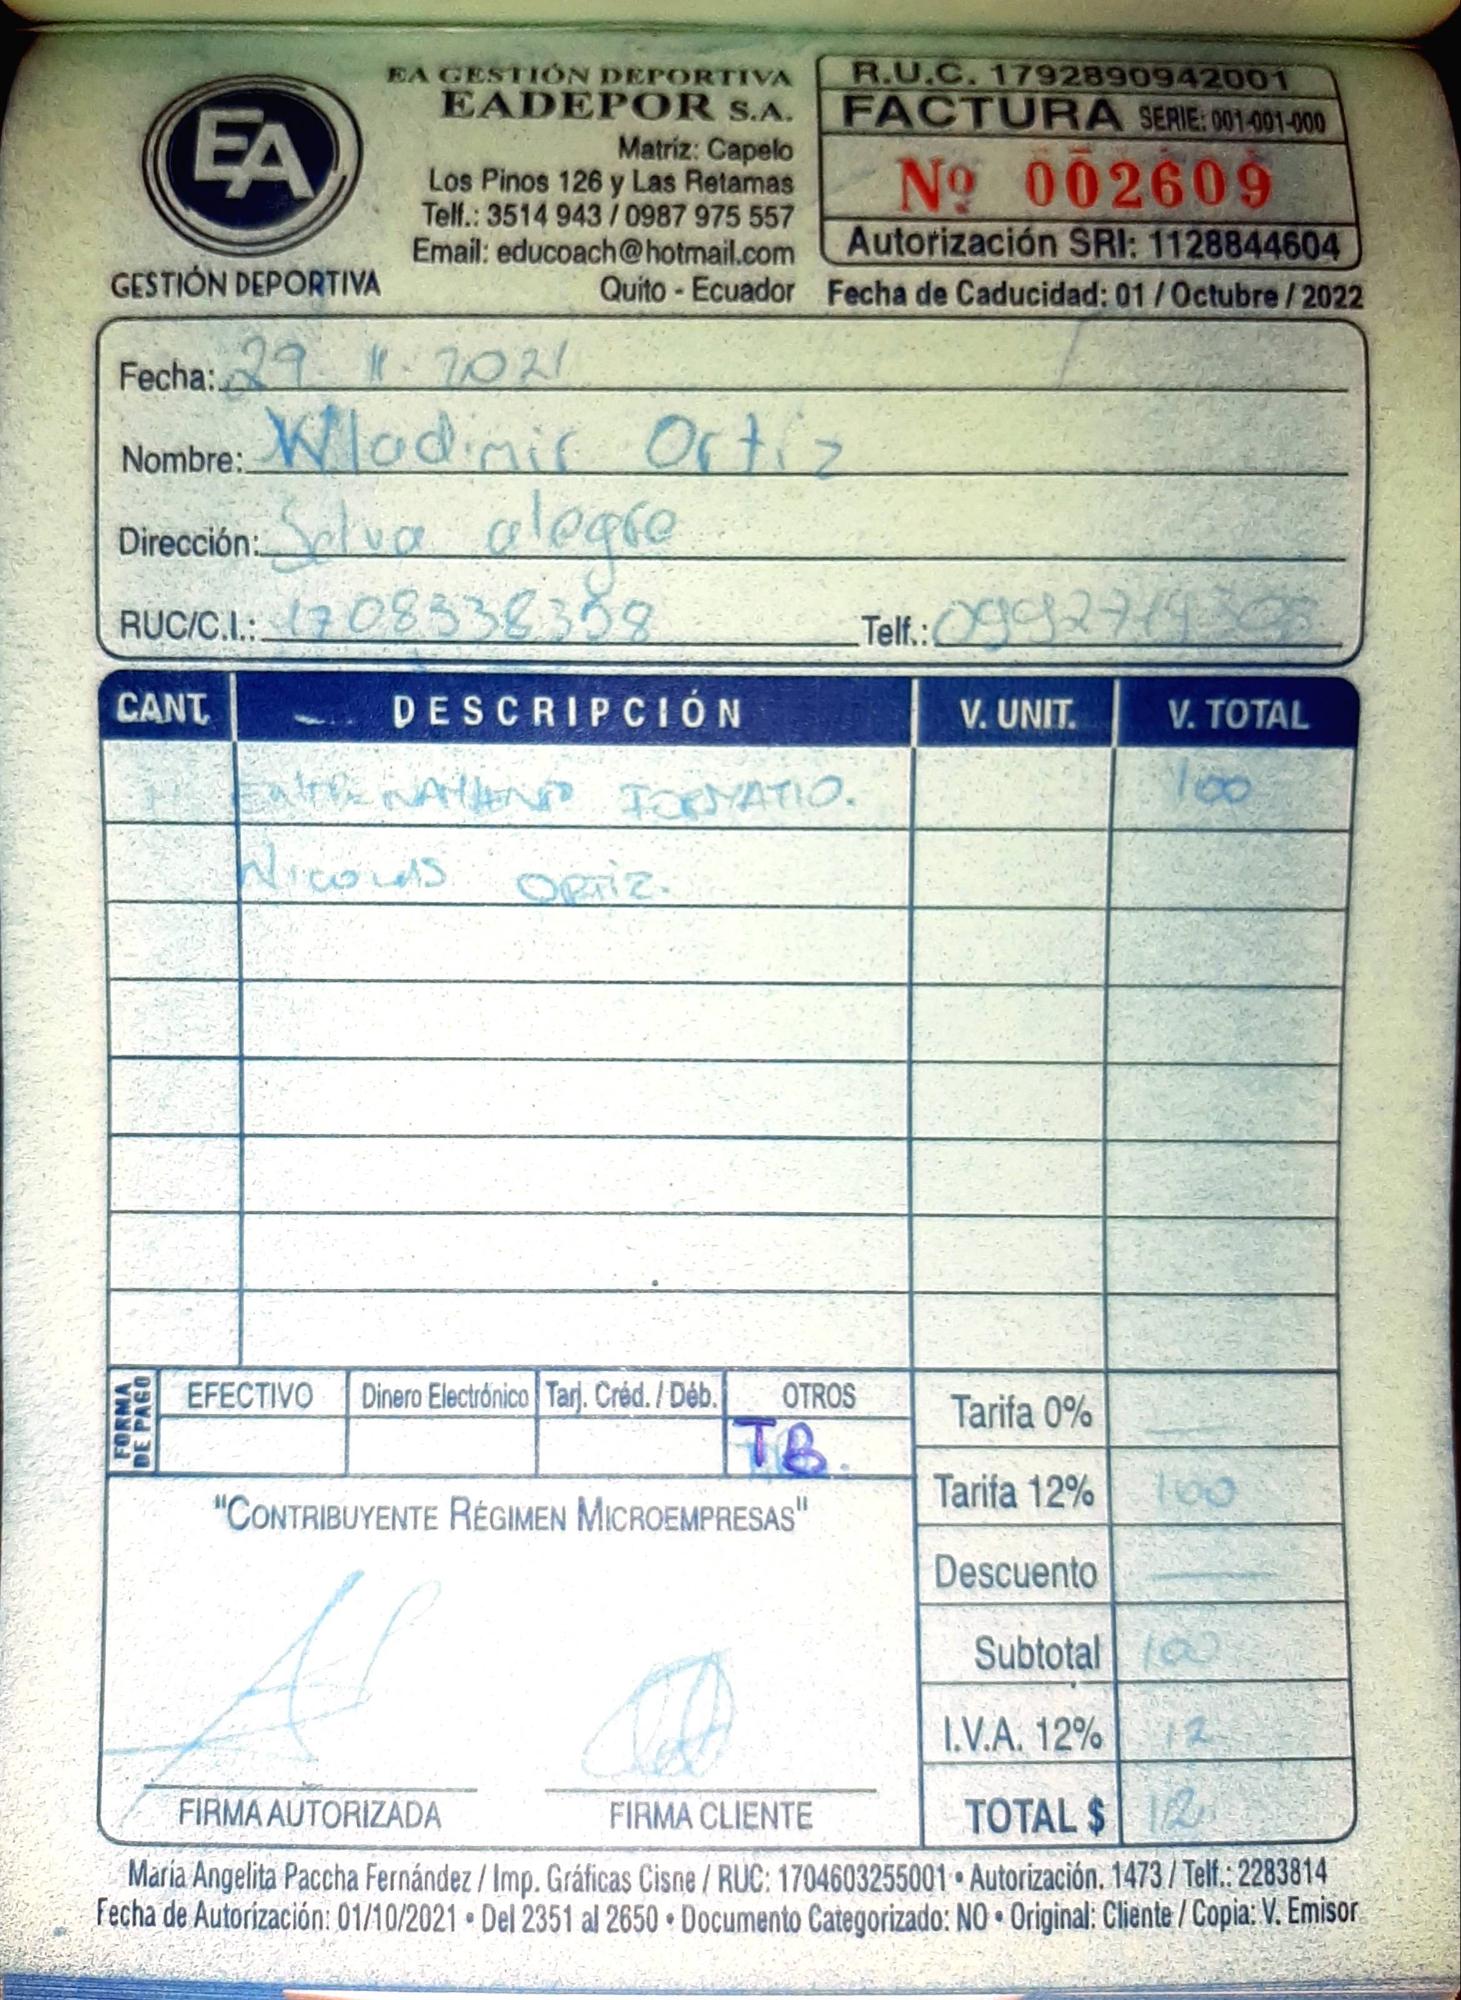 EA
GESTIÓN DEPORTIVA
EA GESTIÓN DEPORTIVA
EADEPOR S.A.
Matríz: Capelo
Los Pinos 126 y Las Retamas
Telf.: 3514 943 / 0987 975 557
Email: educoach@hotmail.com
Quito - Ecuador
R.U.C. 1792890942001
FACTURA SERIE: 001-001-000
Nº 002609
Autorización SRI: 1128844604
Fecha de Caducidad: 01 / Octubre / 2022
Fecha: 29 11. 2021
Nombre: Wladimir Ortiz
Dirección: Selva alegre
RUC/C.I.: 1708338358 Telf.:
CANT. DESCRIPCIÓN V. UNIT. V. TOTAL
ENTRENAMIENTO FORMATIO. 100
NICOLAS ORTIZ.
FORMA DE PAGO
EFECTIVO Dinero Electrónico Tarj. Créd. / Déb. OTROS
TB.
Tarifa 0% —
Tarifa 12% 100
Descuento —
Subtotal 100
I.V.A. 12% 12
TOTAL $ 112
"CONTRIBUYENTE RÉGIMEN MICROEMPRESAS"
FIRMA AUTORIZADA FIRMA CLIENTE
María Angelita Paccha Fernández / Imp. Gráficas Cisne / RUC: 1704603255001 • Autorización. 1473 / Telf.: 2283814
Fecha de Autorización: 01/10/2021 • Del 2351 al 2650 • Documento Categorizado: NO • Original: Cliente / Copia: V. Emisor